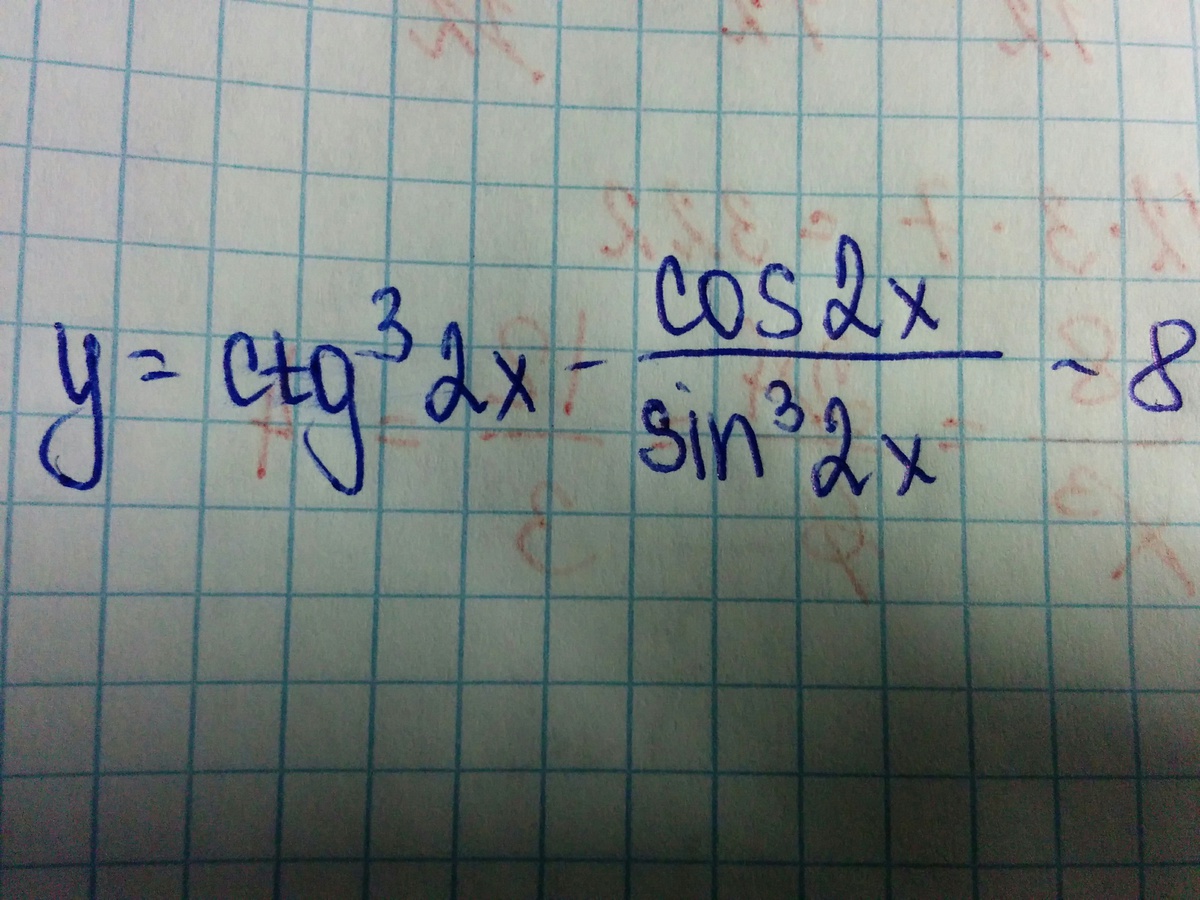 y = ctg³ 2x - cos 2x / sin³ 2x - 8